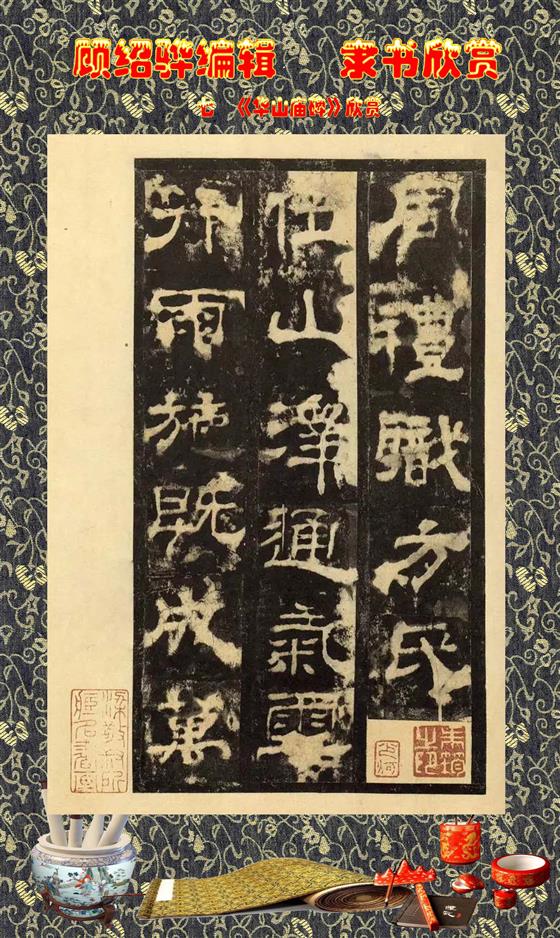 顾绍骅编辑 隶书欣赏
《华山庙碑》欣赏
周禮職方氏
位山澤通氣雲
行雨施既成萬